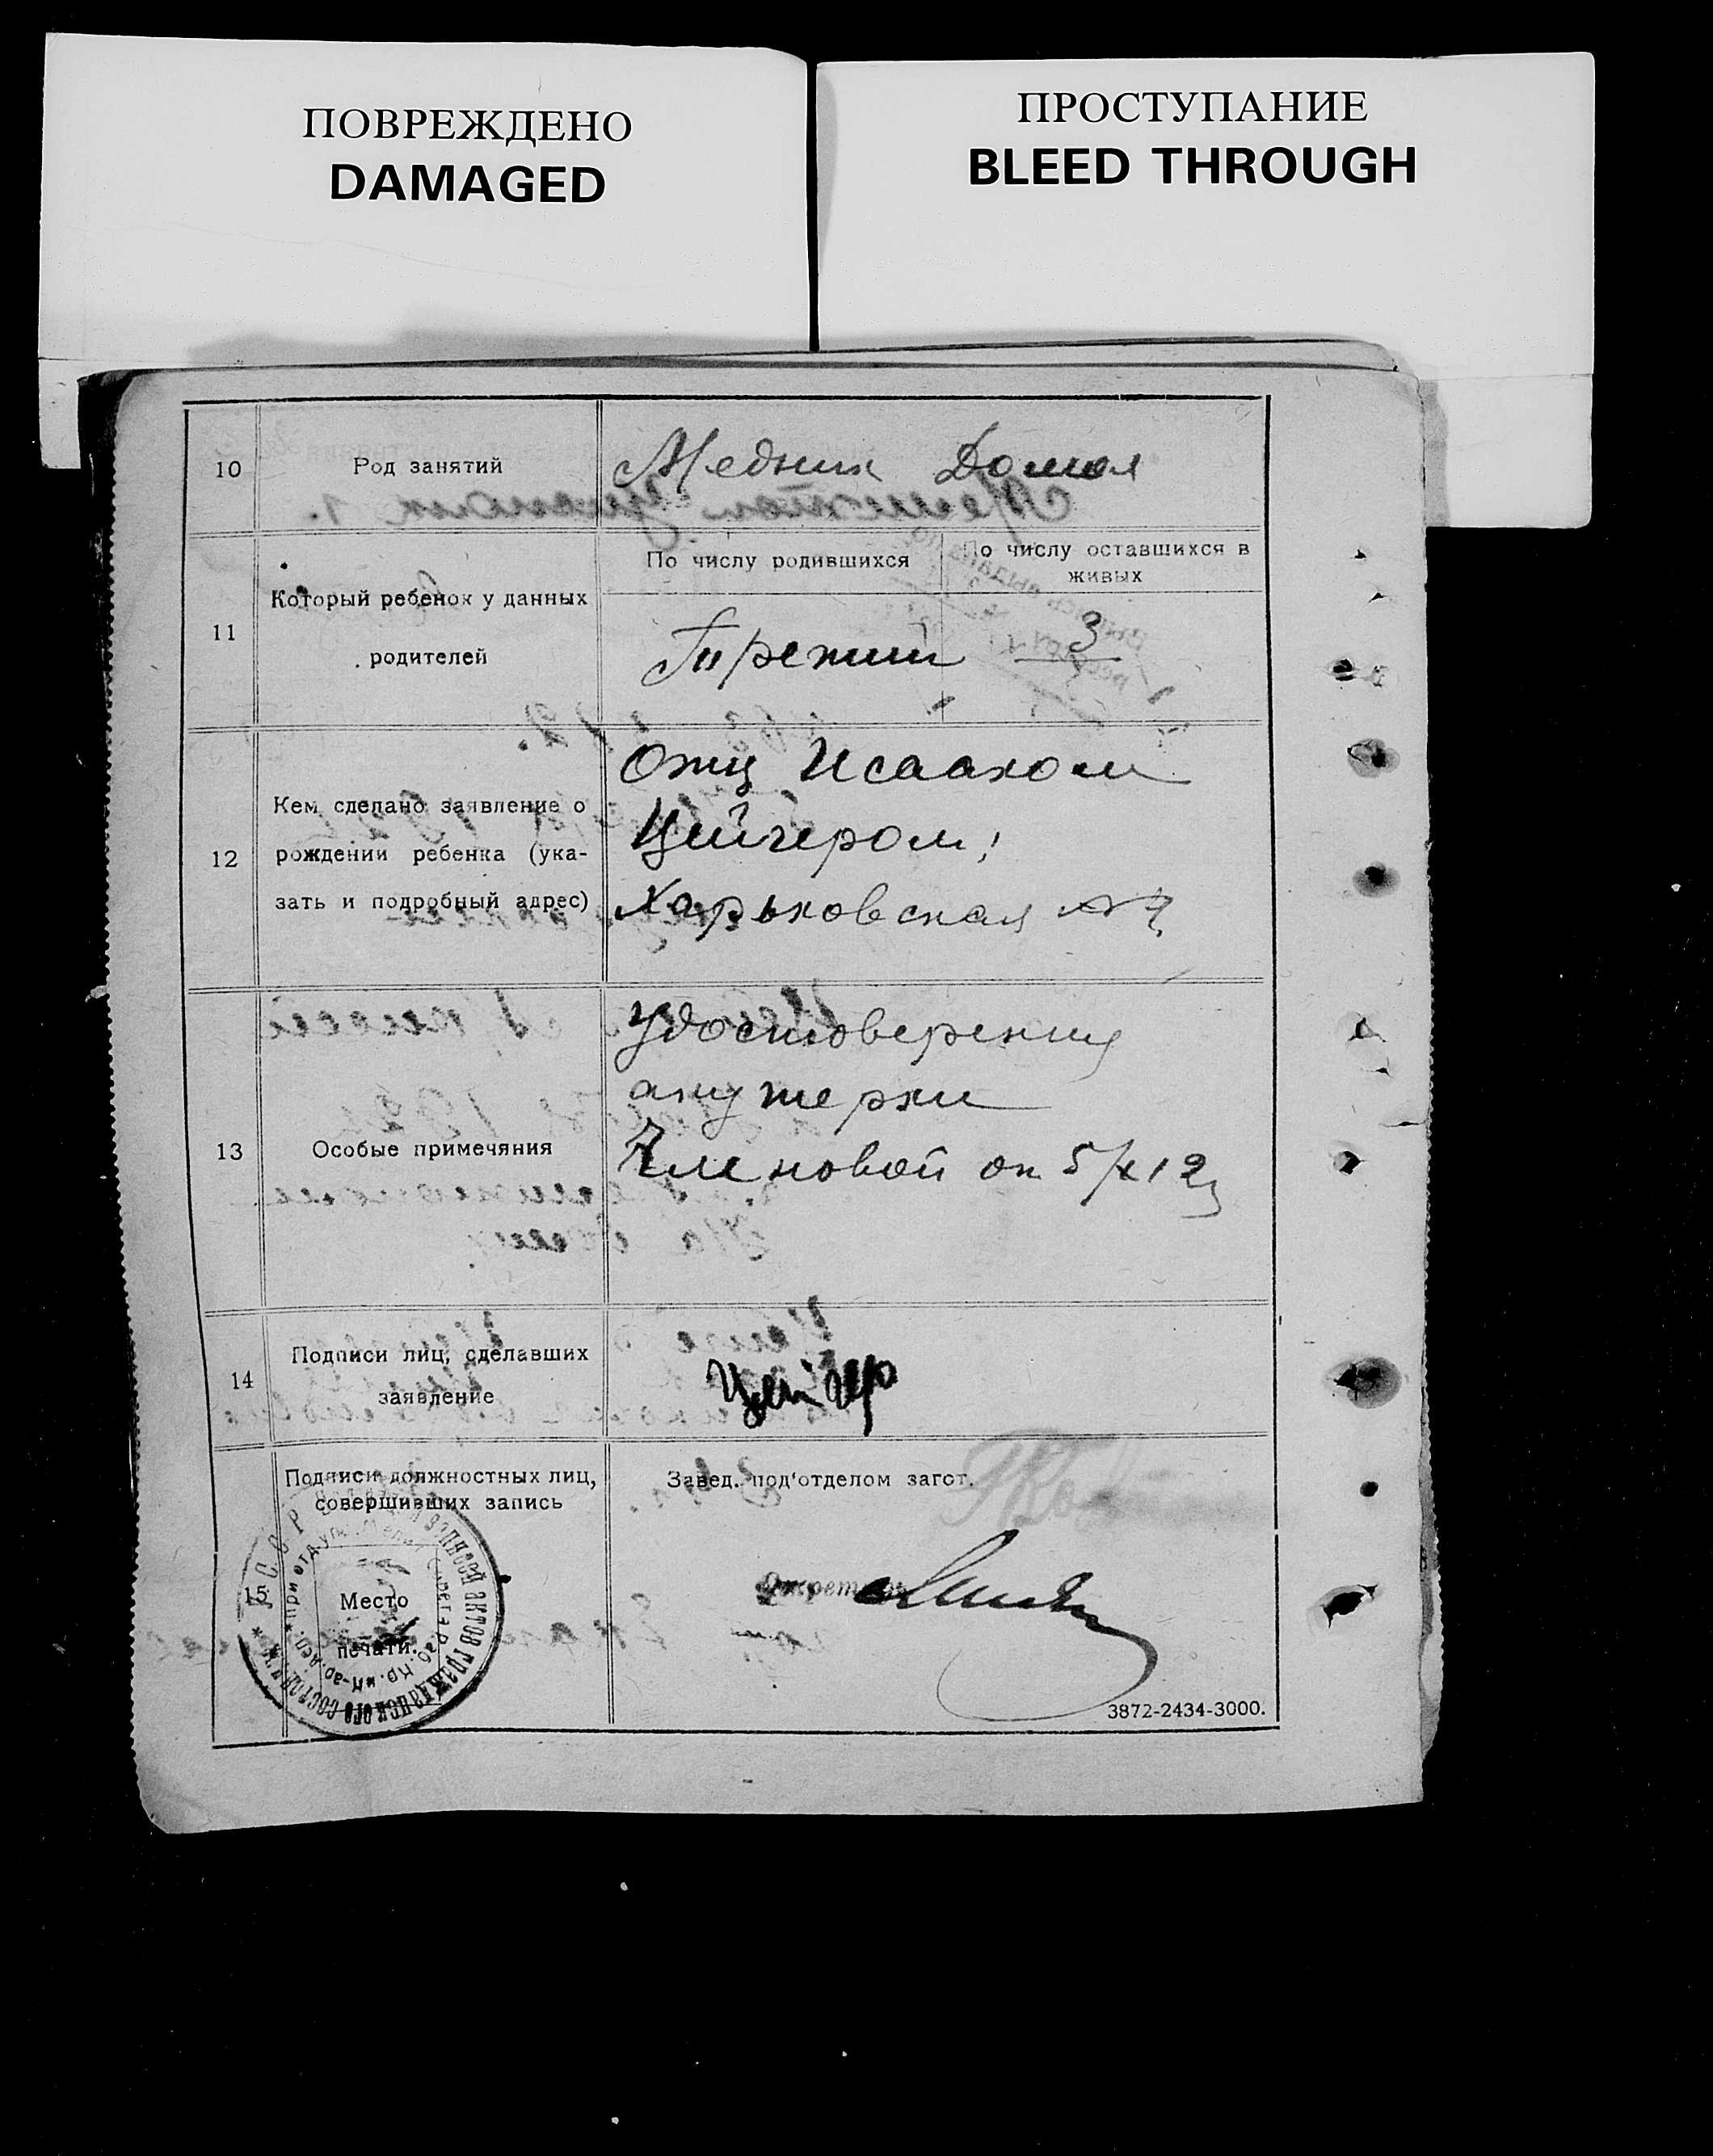 ПОВРЕЖДЕНО
DAMAGED
ПРОСТУПАНИЕ
BLEED THROUGH
10
Род занятий
Медник Домой
11
Который ребенок у данных
родителей
По числу родившихся
По числу оставшихся в
живых
Третий
3
12
Кем сделано заявление о
рождении ребенка (ука-
зать и подробный адрес)
Отц Исааком
Цейгером,
Харьковская
13
Особые примечяния
Удостоверения
акушерки
от 5/X
14
Подписи лиц, сделавших
заявление
Цейгер
15
Подписи должностных лиц,
совершивших запись
Место
печати.
Завед. под'отделом загот.
Секретарь
3872-2434-3000.